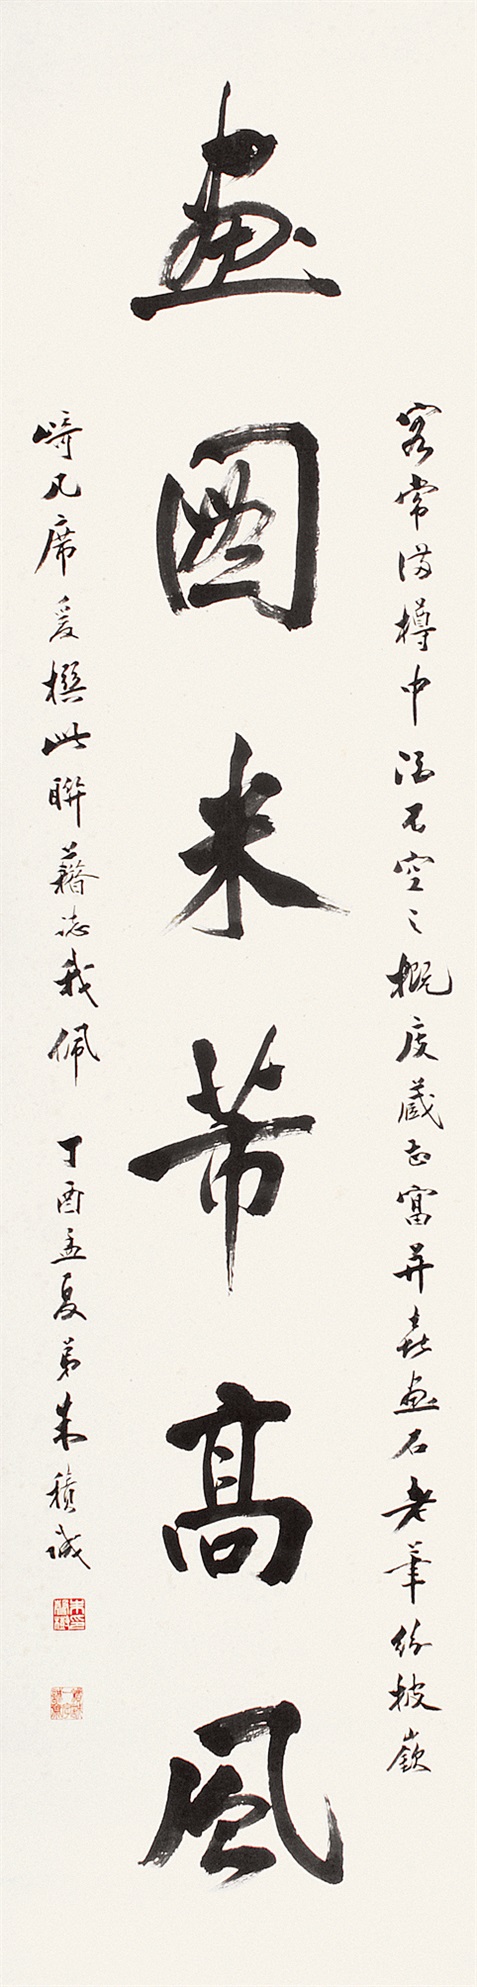 客常滿樽中酒不空之概庋藏甚富并喜畫石老筆紛披嶔
畫圖米芾高風
崎几席爰撰此聯藉誌我佩 丁酉孟夏弟朱積誠